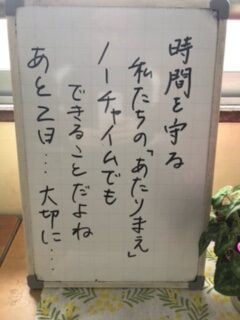 時間を守る
私たちの「あたりまえ」
ノーチャイムでも
できることだよね
あと2日…大切に…